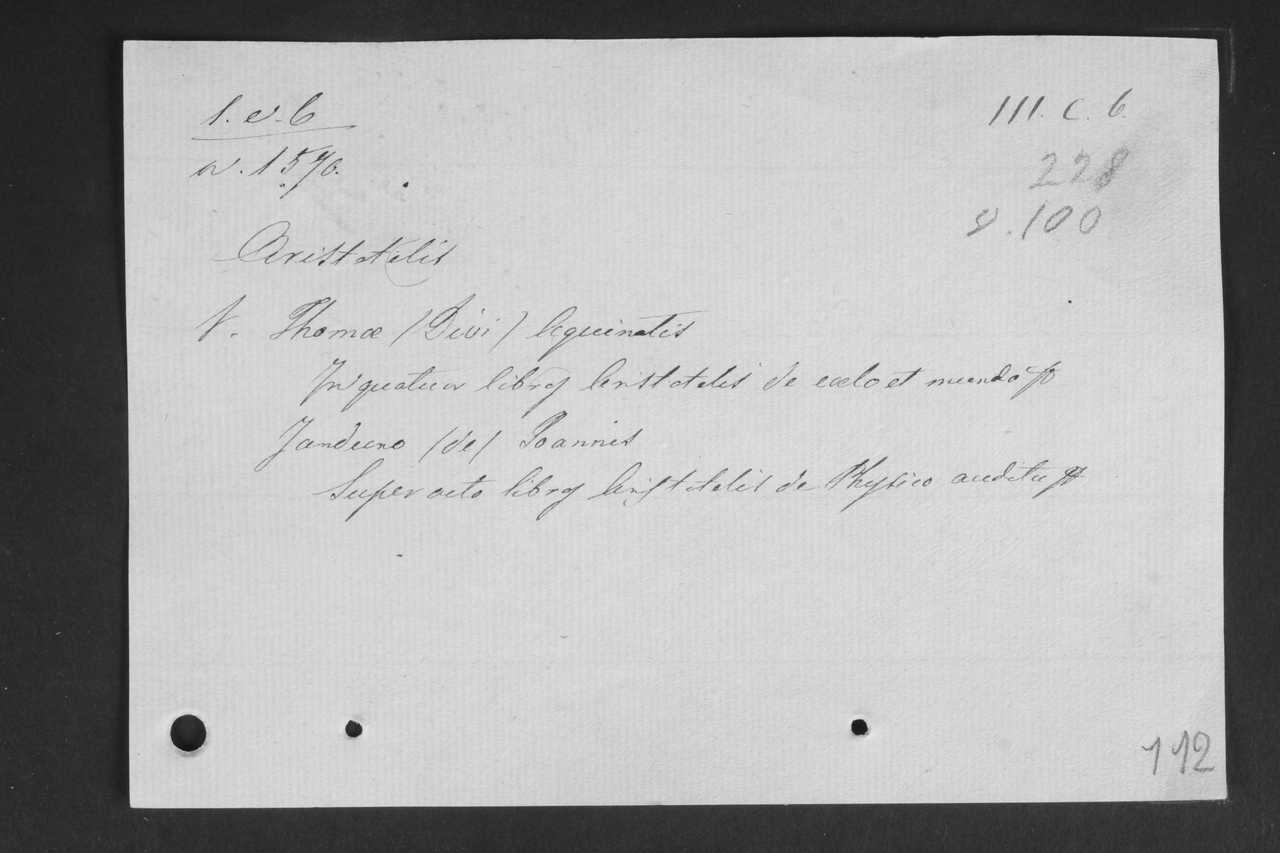 1. e. 6
III. C. 6.
a. 1576.
228
S. 100
Aristotelis
V. Thomæ (Divi) Aquinatis
In quatuor libros Aristotelis de cœlo et mundo fo
Janduno (de) Joannis
Super octo libros Aristotelis de Physico auditu fo
112